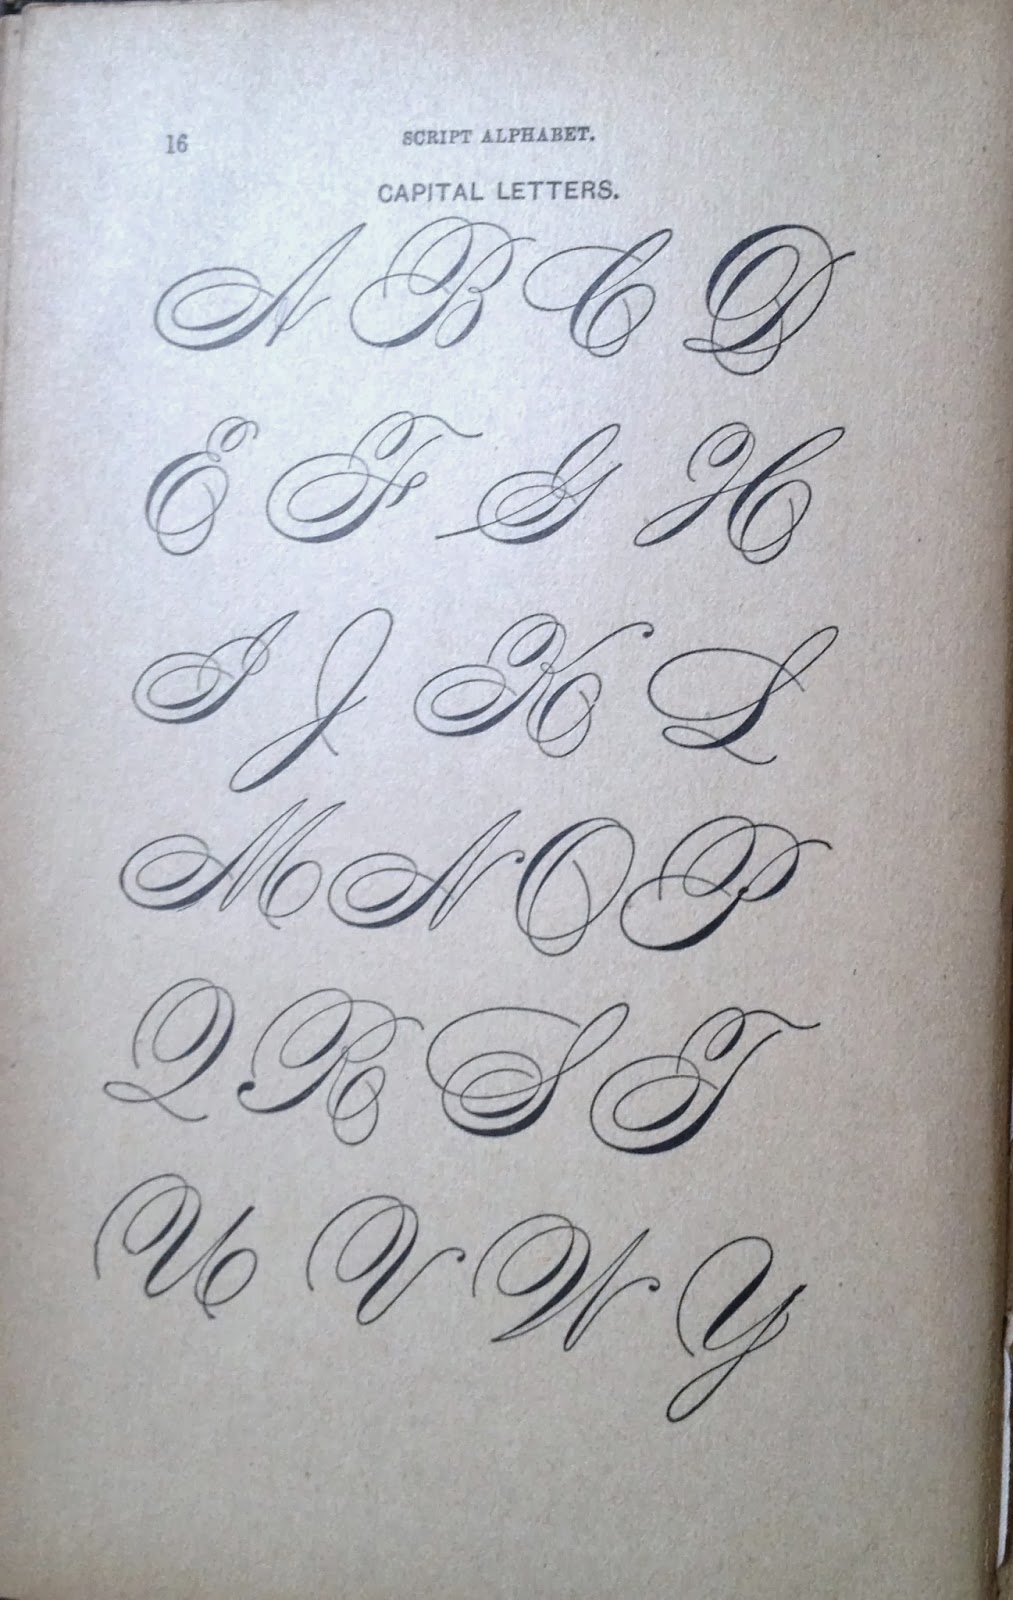 16
SCRIPT ALPHABET.
CAPITAL LETTERS.
A B C D
E F G H
I J K L
M N O P
Q R S T
U V W Y